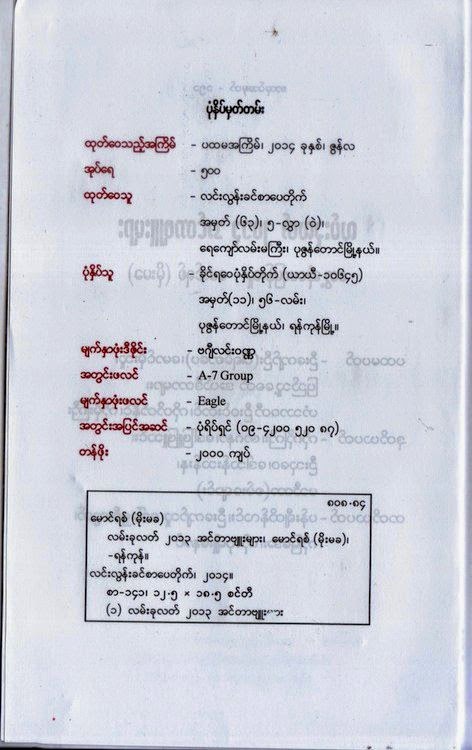 ပုံနှိပ်မှတ်တမ်း
ထုတ်ဝေသည့်အကြိမ် - ပထမအကြိမ်၊ ၂၀၁၄ ခုနှစ်၊ ဇွန်လ
အုပ်ရေ - ၅၀၀
ထုတ်ဝေသူ - လင်းလွန်းခင်စာပေတိုက်
အမှတ် (၆၃)၊ ၅-လွှာ (ဝဲ)၊
ရေကျော်လမ်းမကြီး၊ ပုဇွန်တောင်မြို့နယ်။
ပုံနှိပ်သူ - ခိုင်ရဝေပုံနှိပ်တိုက် (ယာယီ-၁၀၆၄၅)
အမှတ်(၁၁)၊ ၅၆-လမ်း၊
ပုဇွန်တောင်မြို့နယ်၊ ရန်ကုန်မြို့။
မျက်နှာဖုံးဒီဇိုင်း - ဗဂျီလင်းဝဏ္ဏ
အတွင်းဖလင် - A-7 Group
မျက်နှာဖုံးဖလင် - Eagle
အတွင်းအပြင်အဆင် - ပုံရိပ်ရှင် (၀၉-၄၂၀၀ ၅၂၀ ၈၇)
တန်ဖိုး - ၂၀၀၀ ကျပ်
၈၀၈.၈၄
မောင်ရစ် (မိုးမခ)
လမ်းခုလတ် ၂၀၁၃ အင်တာဗျူးများ၊ မောင်ရစ် (မိုးမခ)၊
-ရန်ကုန်။
လင်းလွန်းခင်စာပေတိုက်၊ ၂၀၁၄။
စာ-၁၄၁၊ ၁၂.၅ × ၁၈.၅ စင်တီ
(၁) လမ်းခုလတ် ၂၀၁၃ အင်တာဗျူးများ